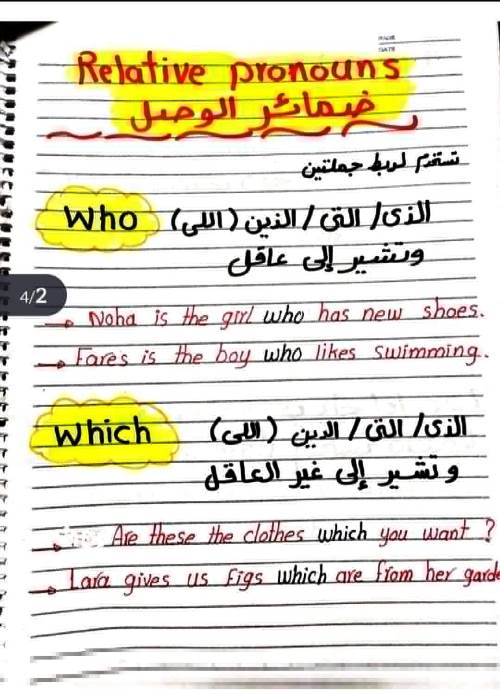 Relative pronouns
ضمائر الوصل
تستخدم لربط جملتين
Who الذى/ التى/ الذين (اللى)
وتشير إلى عاقل
4/2
→ Noha is the girl who has new shoes.
→ Fares is the boy who likes swimming.
Which الذى/ التى/ الذين (اللى)
وتشير إلى غير العاقل
→ Are these the clothes which you want ?
→ Lara gives us figs which are from her garde